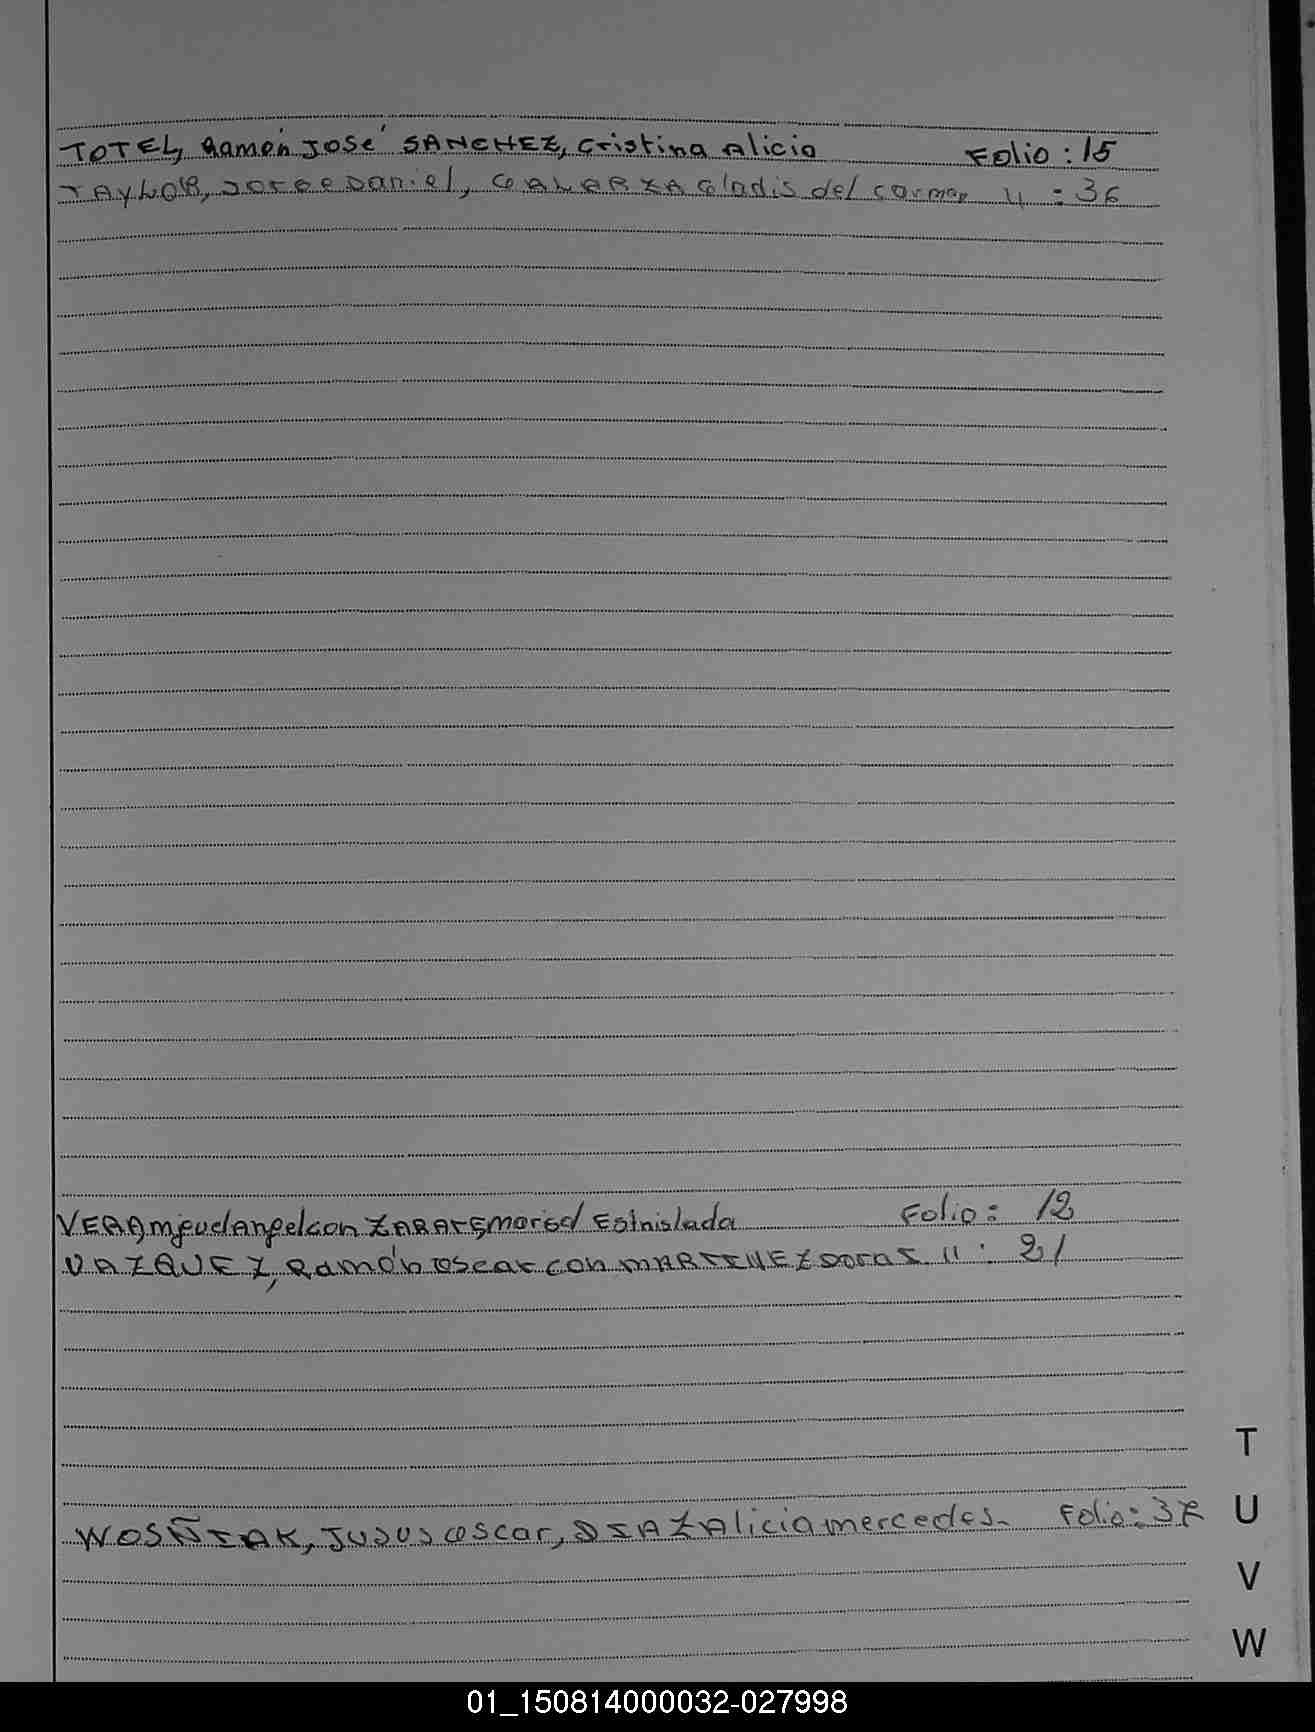 TOTEL, Ramón José SANCHEZ, Cristina Alicia Folio: 15
TAYLOR, Jorge Daniel, GALARZA Gladis del Carmen 11 : 36
VERA, Miguel Angel con ZARATE, María Estnislada Folio: 12
VAZQUEZ, Ramón Oscar con MARTINEZ 11 : 21
WOSÑIAK, Jusus Oscar, DIAZ Alicia Mercedes. Folio: 37
T
U
V
W
01_150814000032-027998